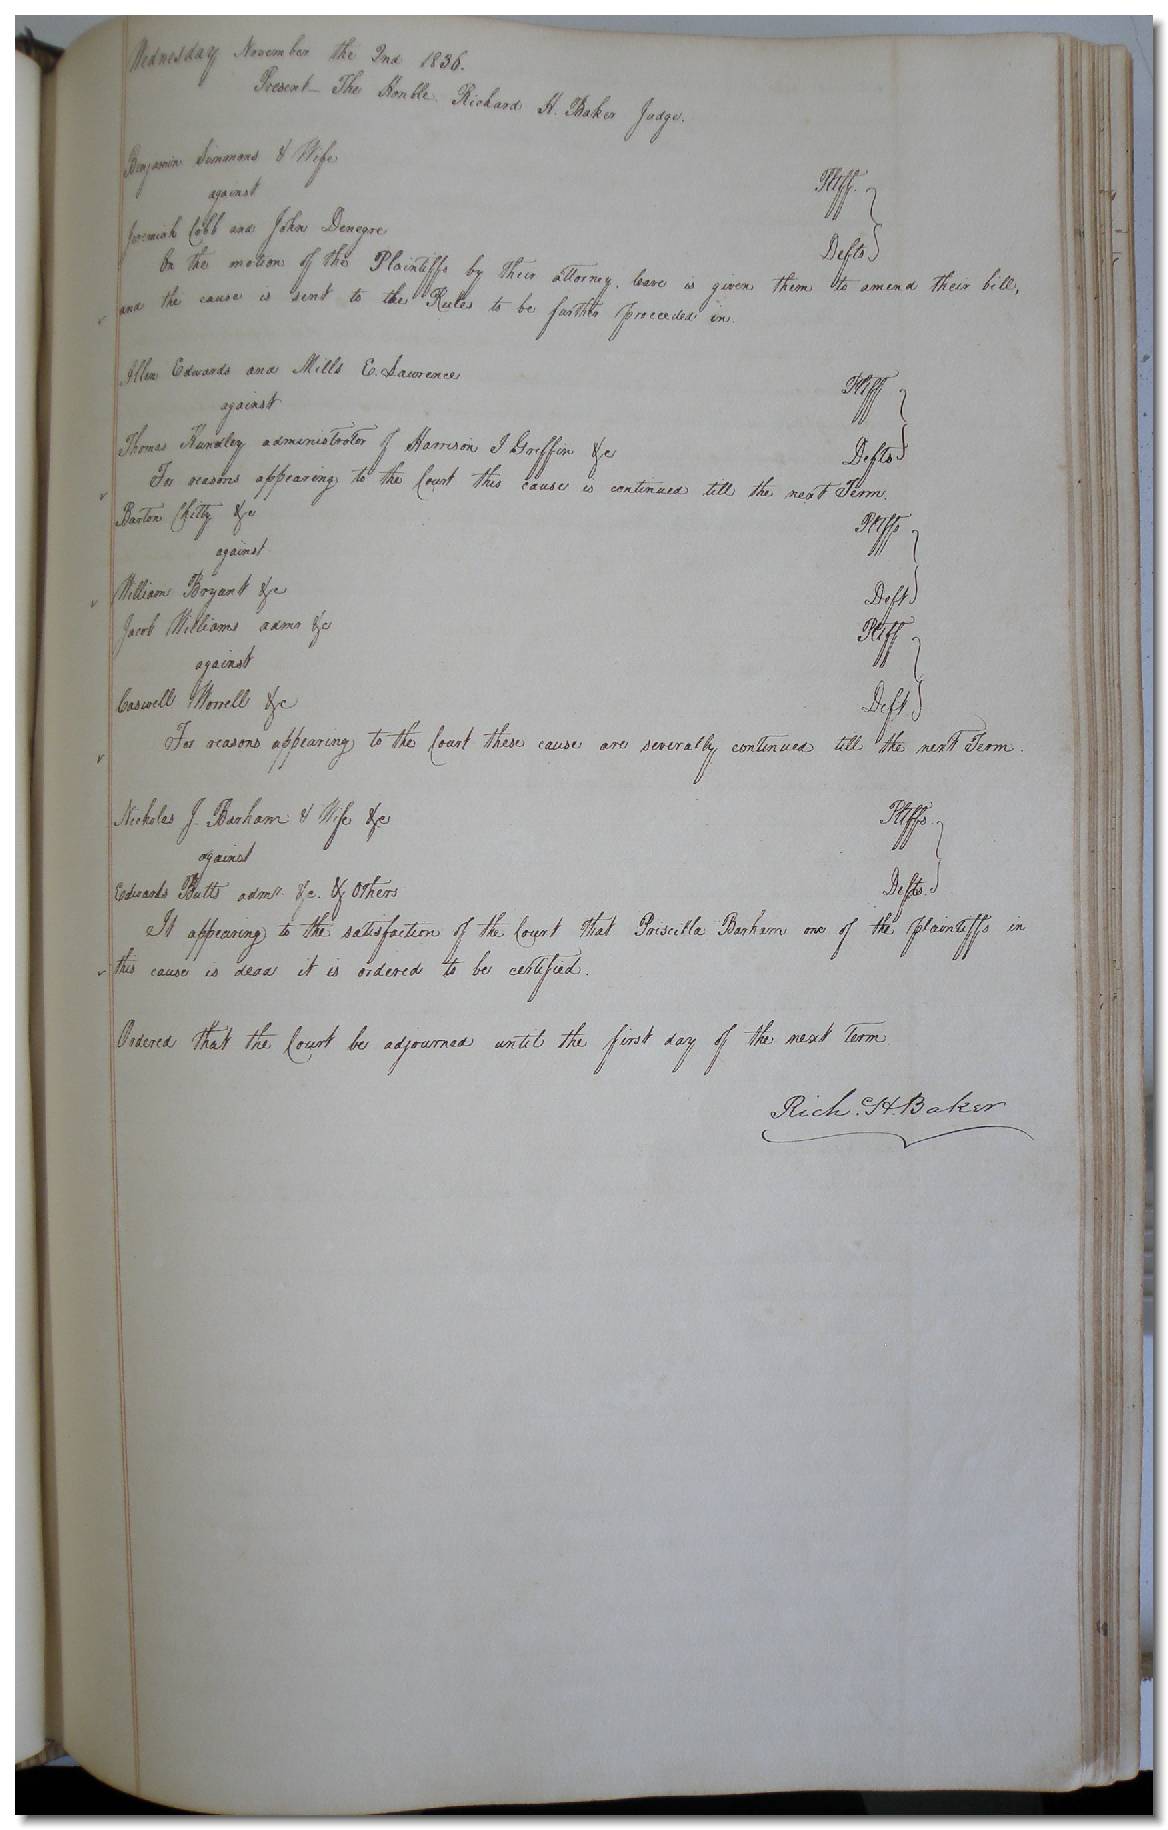 Wednesday November the 2nd 1836.
Present - The Honble. Richard H. Baker Judge.
Benjamin Simmons & Wife Pltffs.
against
Jeremiah Cobb and John Denegre Defts
On the motion of the Plaintiffs by their attorney, leave is given them to amend their bill,
and the cause is sent to the Rules to be further proceeded in.
Allen Edwards and Mills E. Lawrence Pltff
against
Thomas Hundley administrator of Harrison I Griffin &c Defts
For reasons appearing to the Court this cause is continued till the next Term.
Barton Chitty &c Pltffs
against
William Bryant &c Deft
Jacob Williams admr &c Pltff
against
Caswell Worrell &c Deft
For reasons appearing to the Court these cause are severally continued till the next Term.
Nicholas J. Barham & Wife &c Pltffs.
against
Edwards Butts admr. &c. & Others Defts.
It appearing to the satisfaction of the Court that Priscilla Barham one of the plaintiffs in
this cause is dead it is ordered to be certified.
Ordered that the Court be adjourned until the first day of the next term.
Rich. H. Baker